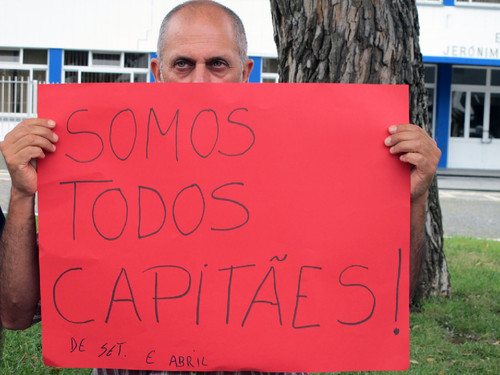 E
JERÓNIMO
SOMOS
TODOS
CAPITÃES!
DE SET. E ABRIL